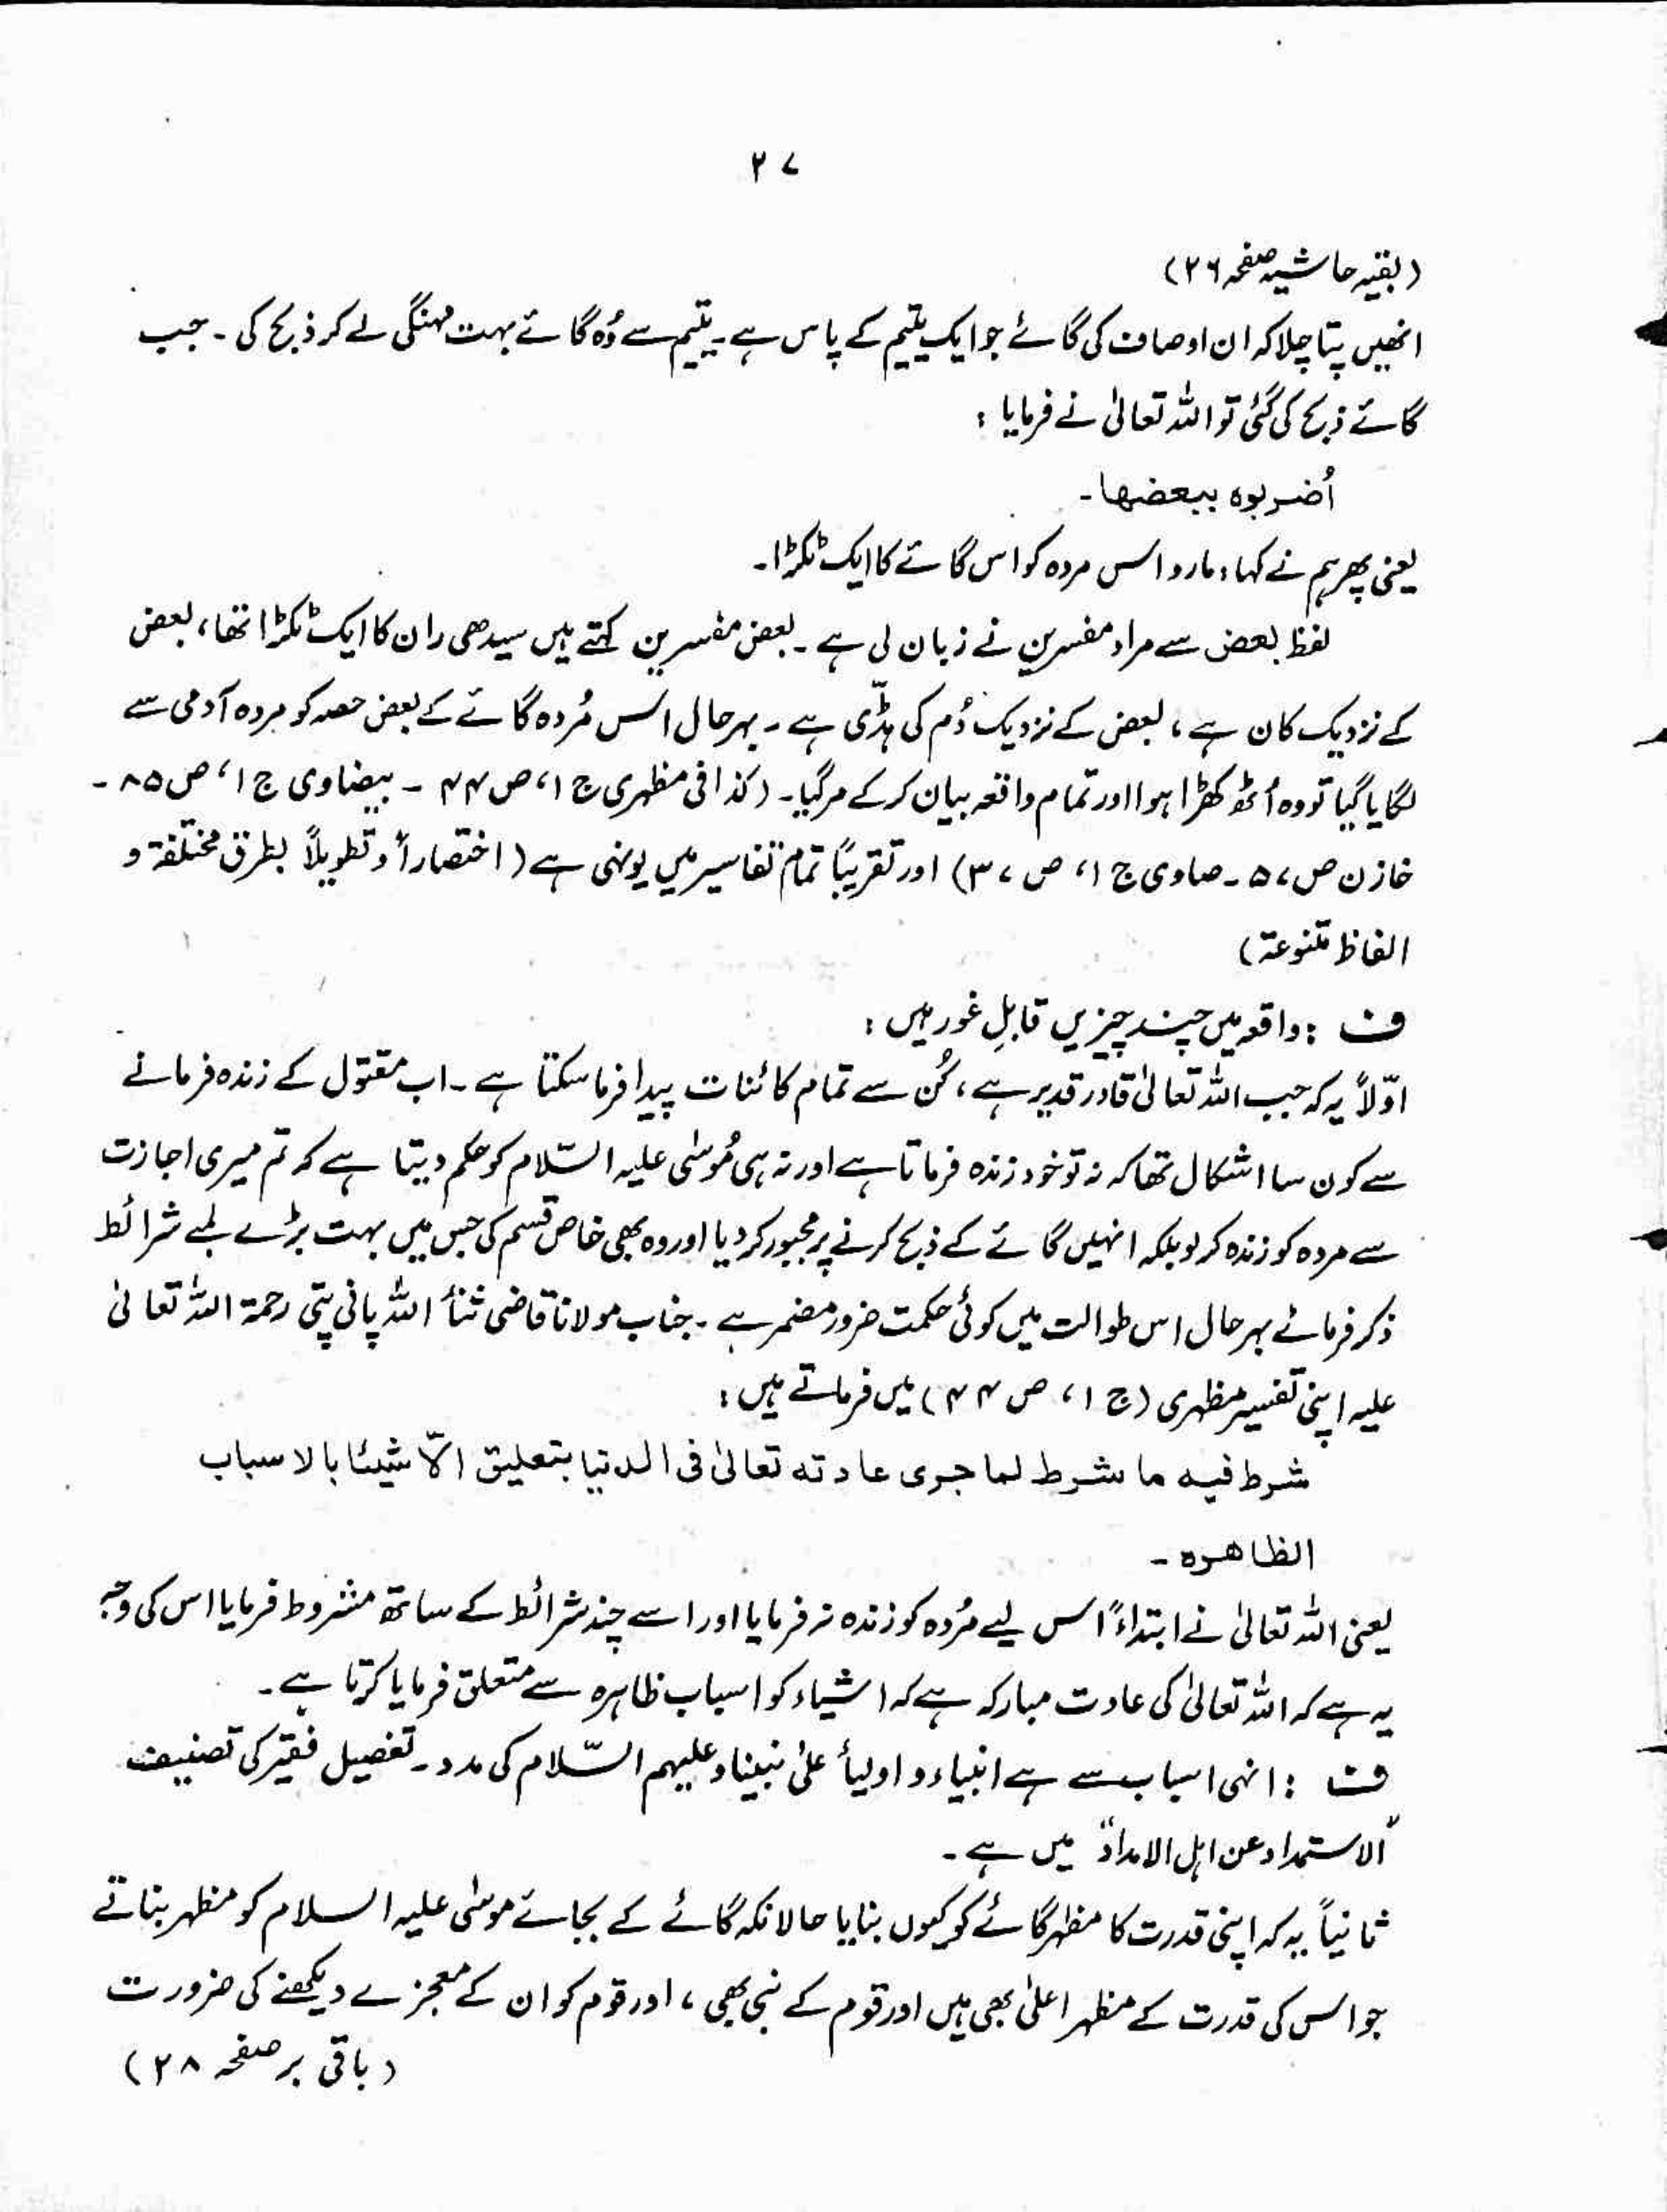 ۲۷
(بقیہ حاشیہ صفحہ ۲۶)
انھیں پتا چلا کہ ان اوصاف کی گائے جو ایک یتیم کے پاس ہے۔ یتیم سے وُہ گائے بہت مہنگی لے کر ذبح کی۔ جب
گائے ذبح کی گئی تو اللہ تعالیٰ نے فرمایا :
اُضربوہ ببعضہا۔
یعنی پھر ہم نے کہا، مارو اس مردہ کو اس گائے کا ایک ٹکڑا۔
لفظ بعض سے مراد مفسرین نے زبان لی ہے۔ بعض مفسرین کہتے ہیں سیدھی ران کا ایک ٹکڑا تھا، بعض
کے نزدیک کان ہے، بعض کے نزدیک دُم کی ہڈّی ہے۔ بہرحال اس مُردہ گائے کے بعض حصہ کو مردہ آدمی سے
لگایا گیا تو وہ اُٹھ کھڑا ہوا اور تمام واقعہ بیان کر کے مر گیا۔ (کذا فی مظہری ج ۱، ص ۴۴ ۔ بیضاوی ج ۱، ص ۸۵ ۔
خازن ص ۵۷ ۔ صاوی ج ۱، ص ۳۷) اور تقریباً تمام تفاسیر میں یونہی ہے (اختصاراً و تطویلاً بطرق مختلفۃ و
الفاظ متنوعۃ)
ف : واقعہ میں چند چیزیں قابلِ غور ہیں :
اوّلاً یہ کہ جب اللہ تعالیٰ قادر قدیر ہے، کُن سے تمام کائنات پیدا فرما سکتا ہے۔ اب مقتول کے زندہ فرمانے
سے کون سا اشکال تھا کہ نہ تو خود زندہ فرماتا ہے اور نہ ہی مُوسٰی علیہ السّلام کو حکم دیتا ہے کہ تم میری اجازت
سے مردہ کو زندہ کر لو بلکہ انہیں گائے کے ذبح کرنے پر مجبور کر دیا اور وہ بھی خاص قسم کی جس میں بہت بڑے لمبے شرائط
ذکر فرمائے بہرحال اس طوالت میں کوئی حکمت ضرور مضمر ہے۔ جناب مولانا قاضی ثنأ اللہ پانی پتی رحمۃ اللہ تعالیٰ
علیہ اپنی تفسیر مظہری (ج ۱، ص ۴۴) میں فرماتے ہیں :
شرط فیہ ما شرط لما جری عادتہ تعالیٰ فی الدنیا بتعلیق الاّشیئا بالاسباب
الظاھرہ ۔
یعنی اللہ تعالیٰ نے ابتداءً اس لیے مُردہ کو زندہ نہ فرمایا اور اسے چند شرائط کے ساتھ مشروط فرمایا اس کی وجہ
یہ ہے کہ اللہ تعالیٰ کی عادت مبارکہ ہے کہ اشیاء کو اسباب ظاہرہ سے متعلق فرمایا کرتا ہے۔
ف : انہی اسباب سے ہے انبیاء و اولیأ علیٰ نبینا و علیہم السّلام کی مدد۔ تفصیل فقیر کی تصنیف
"الاستمداد عن اہل الامداد" میں ہے۔
ثانیاً یہ کہ اپنی قدرت کا مظہر گائے کو کیوں بنایا حالانکہ گائے کے بجائے موسٰی علیہ السلام کو مظہر بناتے
جو اس کی قدرت کے مظہر اعلیٰ بھی ہیں اور قوم کے نبی بھی، اور قوم کو ان کے معجزے دیکھنے کی ضرورت
(باقی بر صفحہ ۲۸)